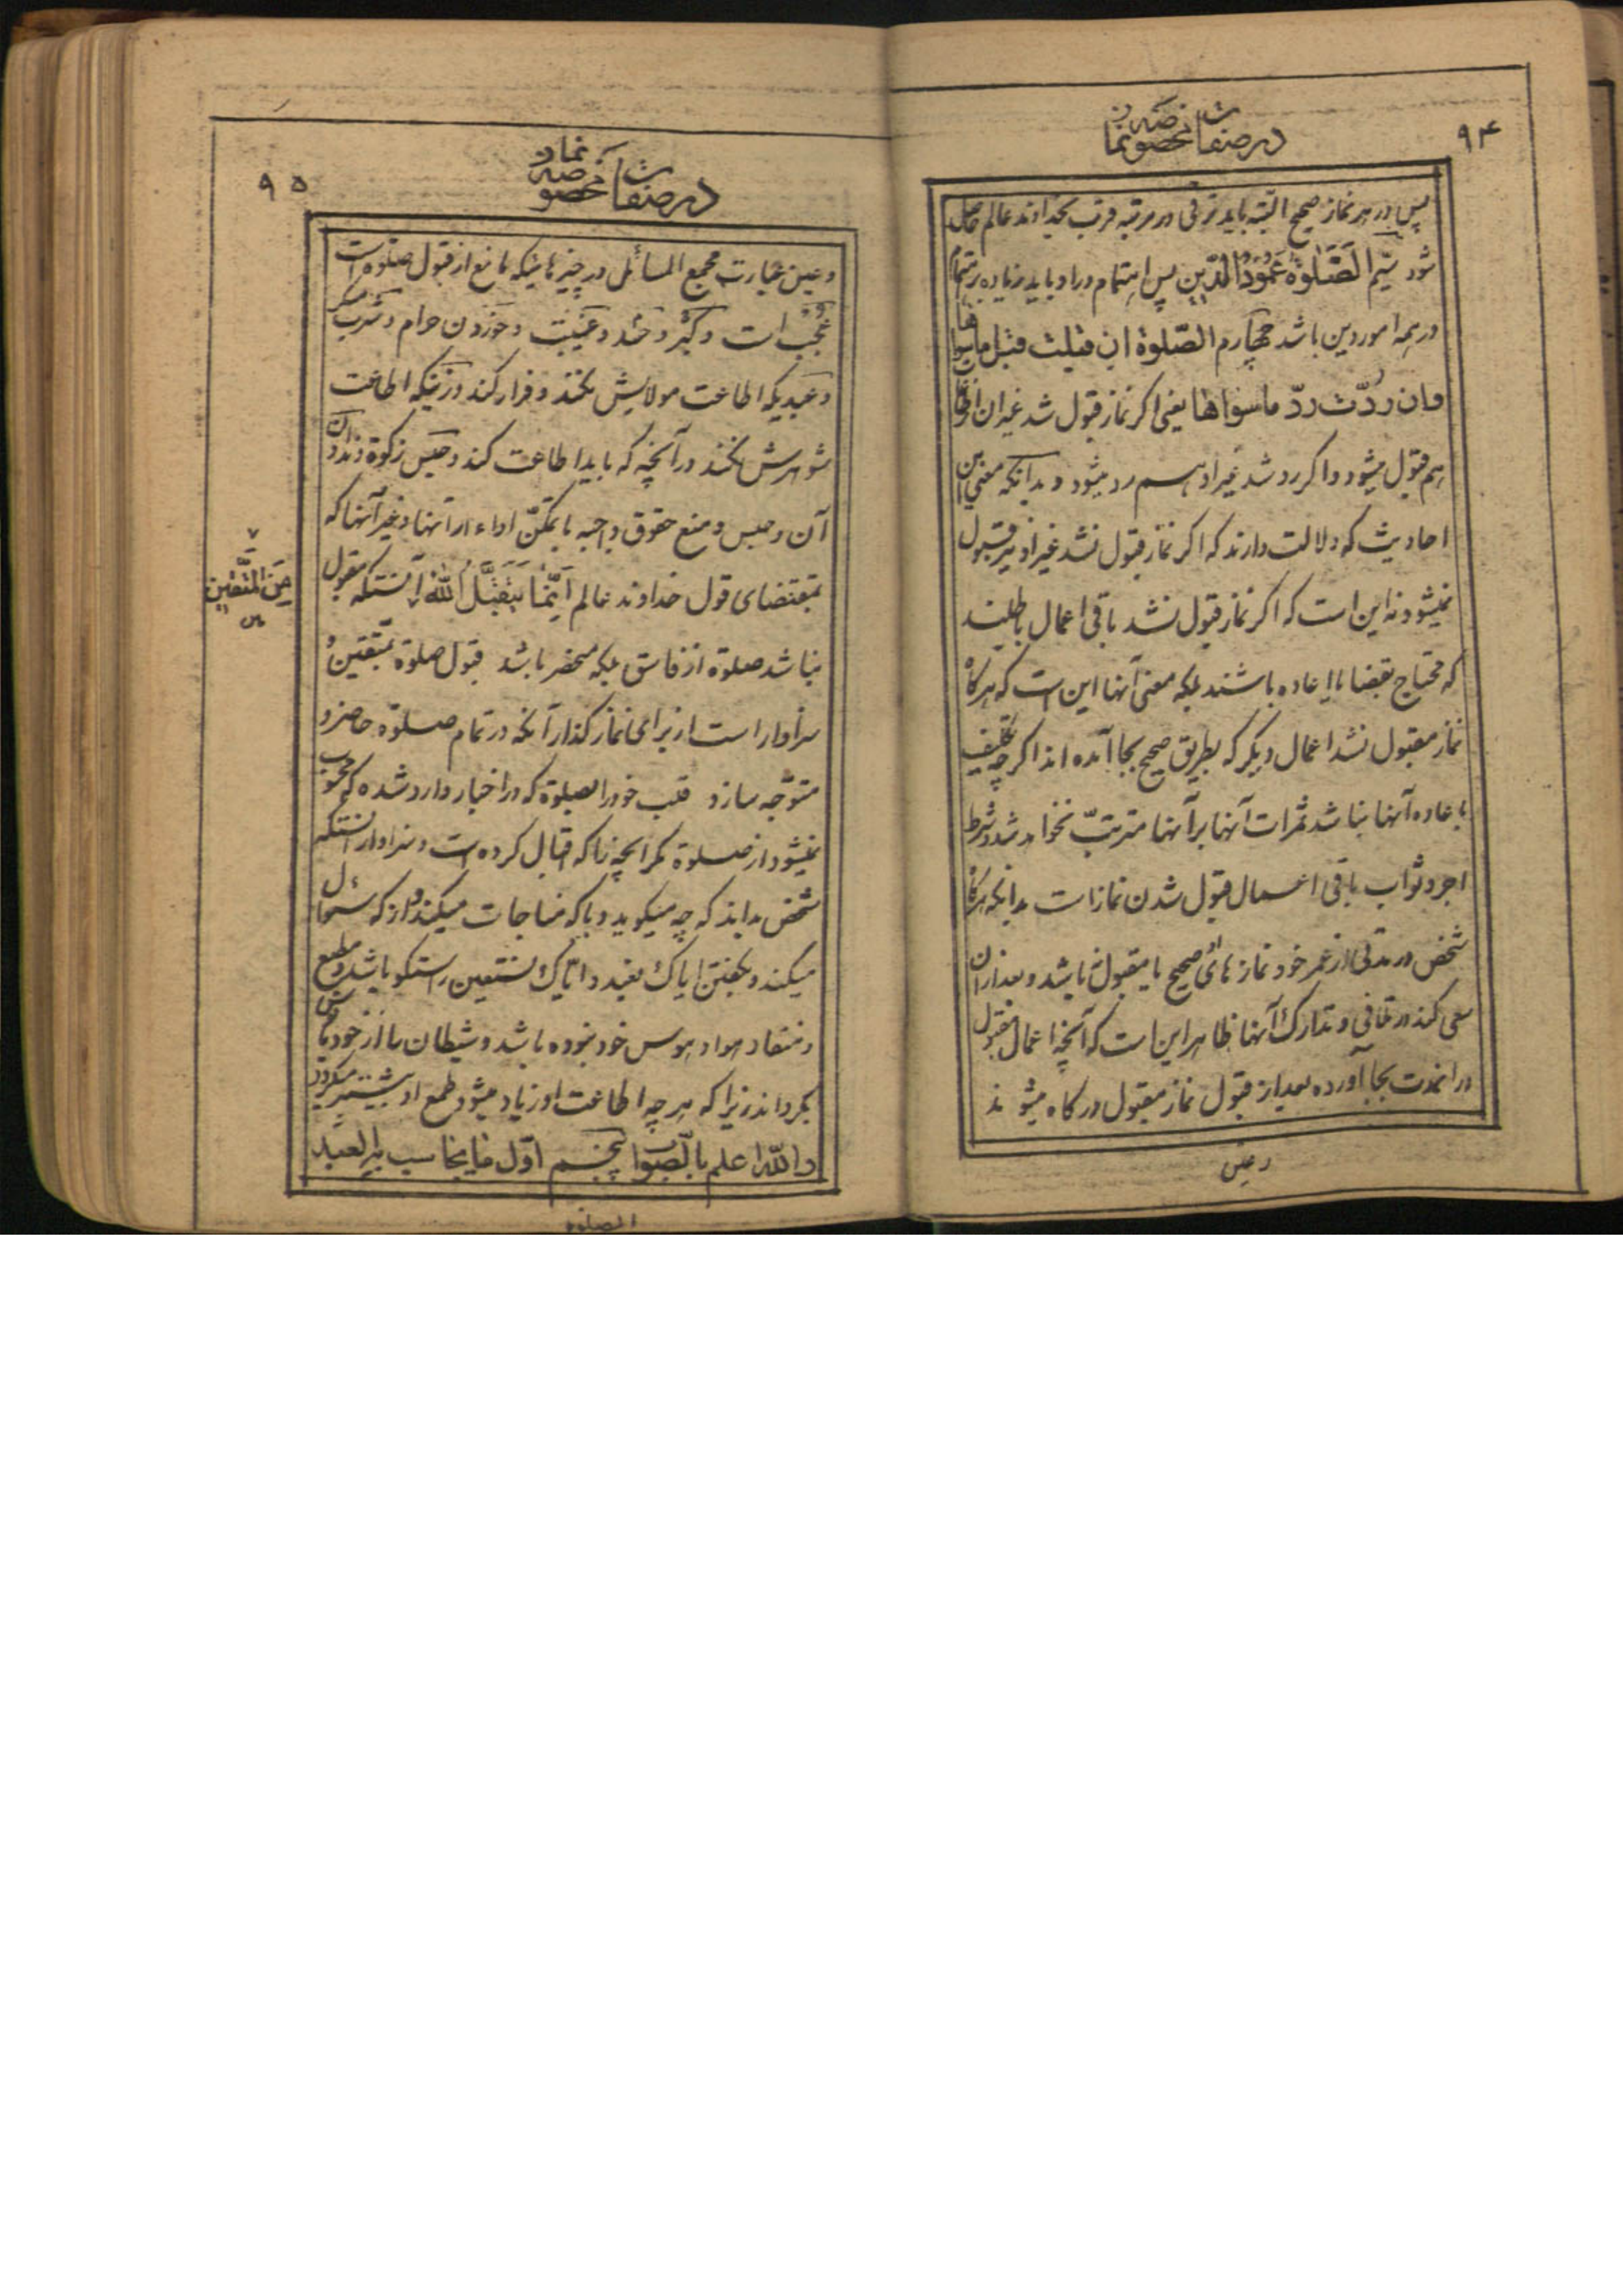 ۹۴
در صفات مخصوصه نماز
پس در هر نماز صحیح البته باید ترقی در مرتبه قرب بخداوند عالم حاصل
شود سیم الصَّلوةُ عَمُودُ الدّین پس اهتمام در او باید زیاده از اهتمام
در همه امور دین باشد چهارم الصّلوة ان قبلت قبل ماسواها
وان ردّت ردّ ماسواها یعنی اگر نماز قبول شد غیر آن
هم قبول میشود و اگر رد شد غیر او هم رد میشود و بدانکه معنی این
احادیث که دلالت دارند که اگر نماز قبول نشد غیر او نیز قبول
نمیشود نه این است که اگر نماز قبول نشد باقی اعمال باطلند
که محتاج بقضا یا اعاده باشند بلکه معنی آنها این است که هرگاه
نماز مقبول نشد اعمال دیگر که بطریق صحیح بجا آمده اند اگر چه تکلیف
باعاده آنها نباشد ثمرات آنها بر آنها مترتب نخواهد شد و شرط
اجر و ثواب باقی اعمال قبول شدن نماز است بدانکه هرگاه
شخص در مدتی از عمر خود نماز های صحیح یا مقبول نباشد و بعد از آن
سعی کند در تلافی و تدارک آنها ظاهر این است که آنچه اعمال مقبول
در انمدت بجا آورده بعد از قبول نماز مقبول درگاه میشوند
وعین
۹۵
در صفات مخصوصه نماز
وعین عبارت مجمع المسائل در چیزهائیکه مانع از قبول صلوة است
عُجْب است و کبر و حسد و غیبت و خوردن حرام و شرب مسکر
و عبدیکه اطاعت مولایش نکند و فرار کند و زنیکه اطاعت
شوهرش نکند در آنچه که باید اطاعت کند و حبس زکوة و ندادن
آن و حبس و منع حقوق واجبه با تمکّن اداء از آنها و غیر آنها که
بمقتضای قول خداوند عالم اِنَّمٰا یَتَقَبَّلُ اللّٰهُ آنستکه مقبول
مِنَ الْمُتَّقین
نباشد صلوة از فاسق بلکه منحصر باشد قبول صلوة بمتّقین و
سزاوار است از برای نماز گذار آنکه در تمام صلوة حاضر و
متوّجه سازد قلب خود را بصلوة که در اخبار وارد شده که محسوب
نمیشود از صلوة مگر آنچه را که اقبال کرده است و سزاوار آنستکه
شخص بداند که چه میگوید و با که مناجات میکند و از که سئوال
میکند و بگفتن ایاک نعبد و ایاک نستعین راستگو باشد و مطیع
و منقاد هوا و هوس خود نبوده باشد و شیطان را از خود
بگرداند زیرا که هر چه اطاعت او زیاد میشود طمع او بیشتر میگردد
والله اعلم بالصّواب پنجم اوّل ما یحاسب به العبد
الصلوة